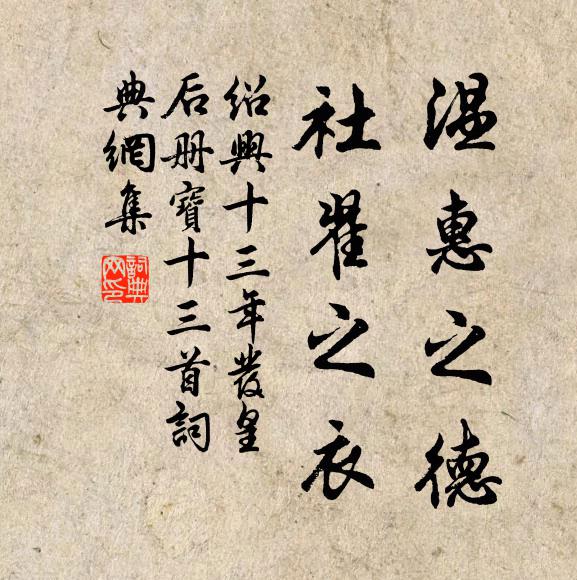 温惠之德
社翟之衣
绍興十三年發皇
后册寶十三首詞
典網集
詞典网印